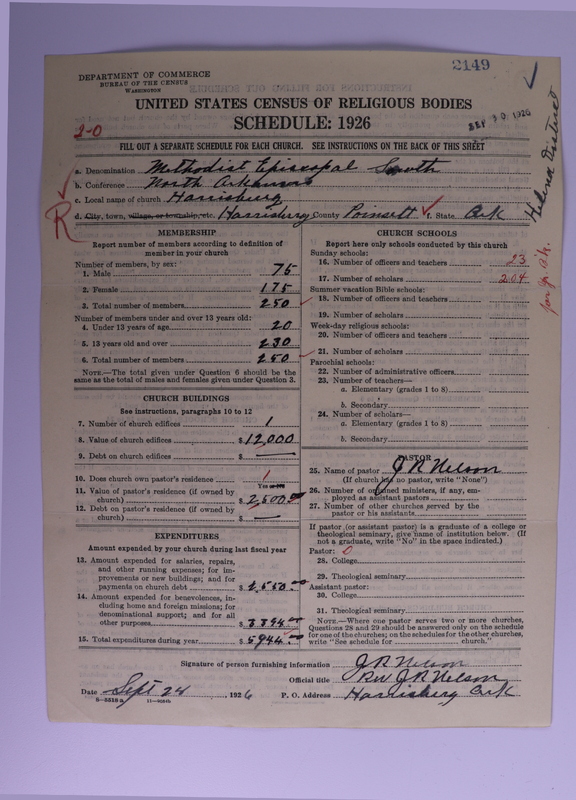 2149
DEPARTMENT OF COMMERCE
BUREAU OF THE CENSUS
WASHINGTON
UNITED STATES CENSUS OF RELIGIOUS BODIES
SCHEDULE: 1926
SEP 30 1926
2-0
FILL OUT A SEPARATE SCHEDULE FOR EACH CHURCH. SEE INSTRUCTIONS ON THE BACK OF THIS SHEET
a. Denomination Methodist Episcopal South
b. Conference North Arkansas
c. Local name of church Harrisburg
d. City, town, village, or township, etc. Harrisburg County Poinsett f. State Ark
R
Helena District
MEMBERSHIP
Report number of members according to definition of
member in your church
Number of members, by sex:
1. Male 75
2. Female 175
3. Total number of members 250
Number of members under and over 13 years old:
4. Under 13 years of age 20
5. 13 years old and over 230
6. Total number of members 250
NOTE.—The total given under Question 6 should be the
same as the total of males and females given under Question 3.
CHURCH BUILDINGS
See instructions, paragraphs 10 to 12
7. Number of church edifices 1
8. Value of church edifices $12,000
9. Debt on church edifices $ —
10. Does church own pastor's residence 1
Yes or No
11. Value of pastor's residence (if owned by
church) $2,500.00
12. Debt on pastor's residence (if owned by
church) $ —
EXPENDITURES
Amount expended by your church during last fiscal year
13. Amount expended for salaries, repairs,
and other running expenses; for im-
provements or new buildings; and for
payments on church debt $2,550.00
14. Amount expended for benevolences, in-
cluding home and foreign missions; for
denominational support; and for all
other purposes $3394.00
15. Total expenditures during year $5944.00
CHURCH SCHOOLS
Report here only schools conducted by this church
Sunday schools:
16. Number of officers and teachers 23
17. Number of scholars 204
Summer vacation Bible schools:
18. Number of officers and teachers
19. Number of scholars
Week-day religious schools:
20. Number of officers and teachers
21. Number of scholars
Parochial schools:
22. Number of administrative officers
23. Number of teachers—
a. Elementary (grades 1 to 8)
b. Secondary
24. Number of scholars—
a. Elementary (grades 1 to 8)
b. Secondary
PASTOR
25. Name of pastor J R Nelson
(If church has no pastor, write "None")
26. Number of ordained ministers, if any, em-
ployed as assistant pastors
27. Number of other churches served by the
pastor or his assistants
If pastor (or assistant pastor) is a graduate of a college or
theological seminary, give name of institution below. (If
not a graduate, write "No" in the space indicated.)
Pastor: 0
28. College
29. Theological seminary
Assistant pastor:
30. College
31. Theological seminary
NOTE.—Where one pastor serves two or more churches,
Questions 28 and 29 should be answered only on the schedule
for one of the churches; on the schedules for the other churches,
write "See schedule for church."
Signature of person furnishing information J R Nelson
Official title Rev J R Nelson
Date Sept 24, 1926 P. O. Address Harrisburg Ark